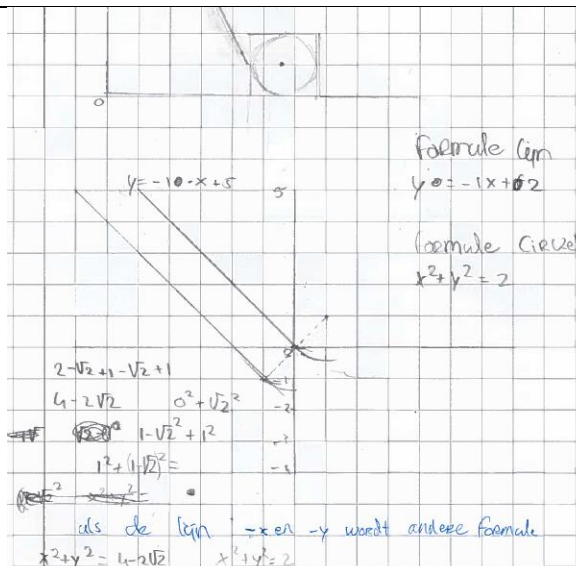 0
Formule lijn
y = -1x + 2
y = -1 · x + 5
5
formule cirkel
x² + y² = 2
2 - √2 + 1 - √2 + 1
-1
4 - 2√2
0² + √2²
-2
1 - √2² + 1²
1² + (1 - √2)² =
als de lijn -x en -y wordt andere formule
x² + y² = 4 - 2√2
x² + y² = 2